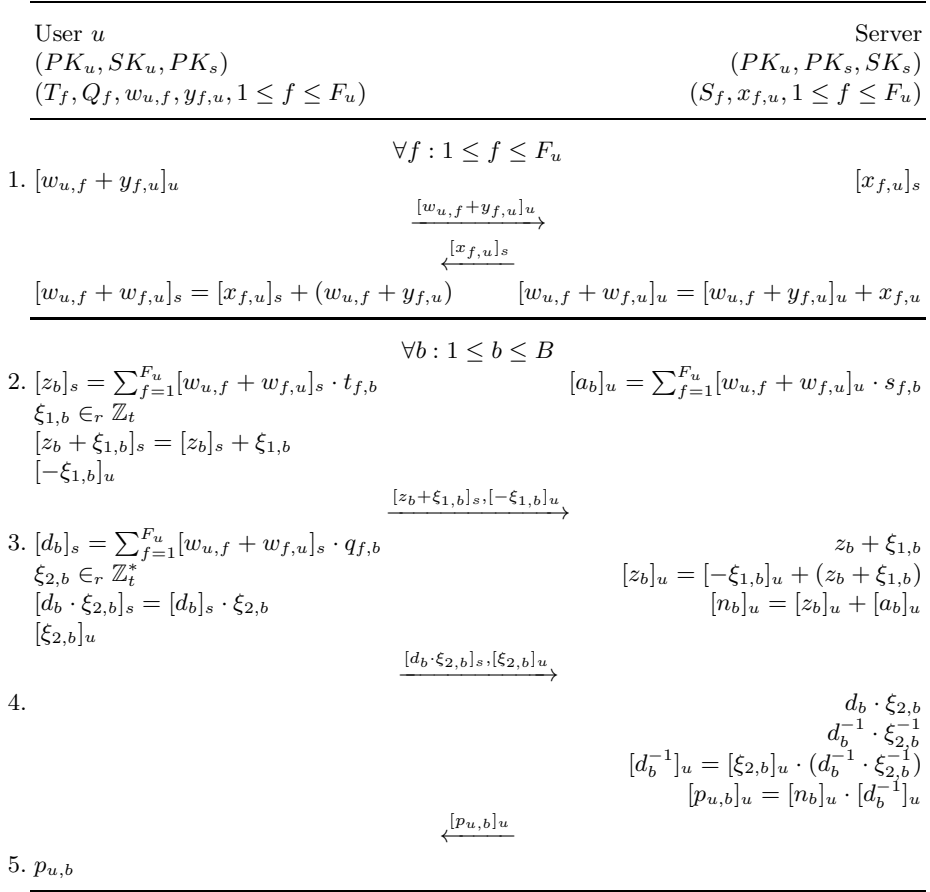 User u Server
(PK_u, SK_u, PK_s) (PK_u, PK_s, SK_s)
(T_f, Q_f, w_{u,f}, y_{f,u}, 1 ≤ f ≤ F_u) (S_f, x_{f,u}, 1 ≤ f ≤ F_u)
∀f : 1 ≤ f ≤ F_u
1. [w_{u,f} + y_{f,u}]_u [x_{f,u}]_s
[w_{u,f}+y_{f,u}]_u →
← [x_{f,u}]_s
[w_{u,f} + w_{f,u}]_s = [x_{f,u}]_s + (w_{u,f} + y_{f,u}) [w_{u,f} + w_{f,u}]_u = [w_{u,f} + y_{f,u}]_u + x_{f,u}
∀b : 1 ≤ b ≤ B
2. [z_b]_s = ∑_{f=1}^{F_u} [w_{u,f} + w_{f,u}]_s · t_{f,b} [a_b]_u = ∑_{f=1}^{F_u} [w_{u,f} + w_{f,u}]_u · s_{f,b}
ξ_{1,b} ∈_r ℤ_t
[z_b + ξ_{1,b}]_s = [z_b]_s + ξ_{1,b}
[−ξ_{1,b}]_u
[z_b+ξ_{1,b}]_s,[−ξ_{1,b}]_u →
3. [d_b]_s = ∑_{f=1}^{F_u} [w_{u,f} + w_{f,u}]_s · q_{f,b} z_b + ξ_{1,b}
ξ_{2,b} ∈_r ℤ_t^* [z_b]_u = [−ξ_{1,b}]_u + (z_b + ξ_{1,b})
[d_b · ξ_{2,b}]_s = [d_b]_s · ξ_{2,b} [n_b]_u = [z_b]_u + [a_b]_u
[ξ_{2,b}]_u
[d_b·ξ_{2,b}]_s,[ξ_{2,b}]_u →
4. d_b · ξ_{2,b}
d_b^{−1} · ξ_{2,b}^{−1}
[d_b^{−1}]_u = [ξ_{2,b}]_u · (d_b^{−1} · ξ_{2,b}^{−1})
[p_{u,b}]_u = [n_b]_u · [d_b^{−1}]_u
← [p_{u,b}]_u
5. p_{u,b}